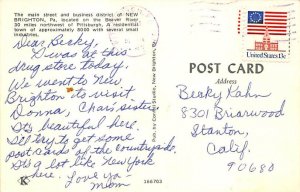 The main street and business district of NEW
BRIGHTON, Pa, located on the Beaver River
30 miles northwest of Pittsburgh, A residential
town of approximately 8000 with several small
industries.
Dear Becky,
I was to this
drug store today.
We went to New
Brighton to visit
Donna, Chari's sister.
It's beautiful here.
I'll try to get some
post cards of the countryside.
It's a lot like New York
here. Love ya
Mom
K
166703
United States 13c
POST CARD
Address
Becky Kahn
8301 Briarwood
Stanton,
Calif.
90680